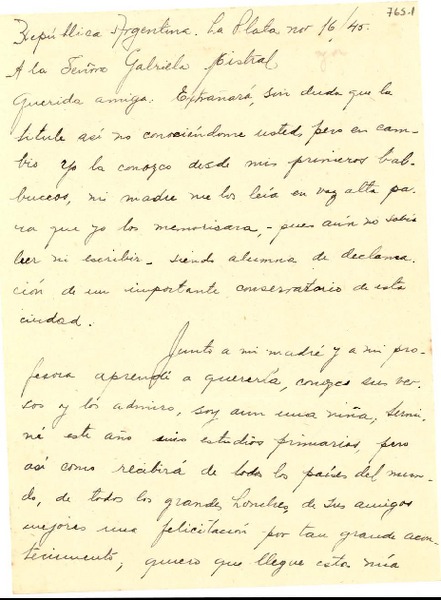 765.1
República Argentina. La Plata nov 16/45.
A la Señora Gabriela Mistral
Querida amiga: Extrañará, sin duda que la
titule así no conociéndome usted, pero en cam-
bio yo la conozco desde mis primeros bal-
buceos, mi madre me los leía en voz alta pa-
ra que yo los memorisara, - pues aún no sabía
leer ni escribir - siendo alumna de declama
ción de un importante conservatorio de esta
ciudad.
Junto a mi madre y a mi pro-
fesora aprendí a quererla, conozco sus ver-
sos y los admiro, soy aun una niña, termi-
né este año mis estudios primarios, pero
así como recibirá de todos los países del mun-
do, de todos los grandes hombres, de sus amigos
mejores una felicitación por tan grande acon-
tecimiento, quiero que llegue esta mía